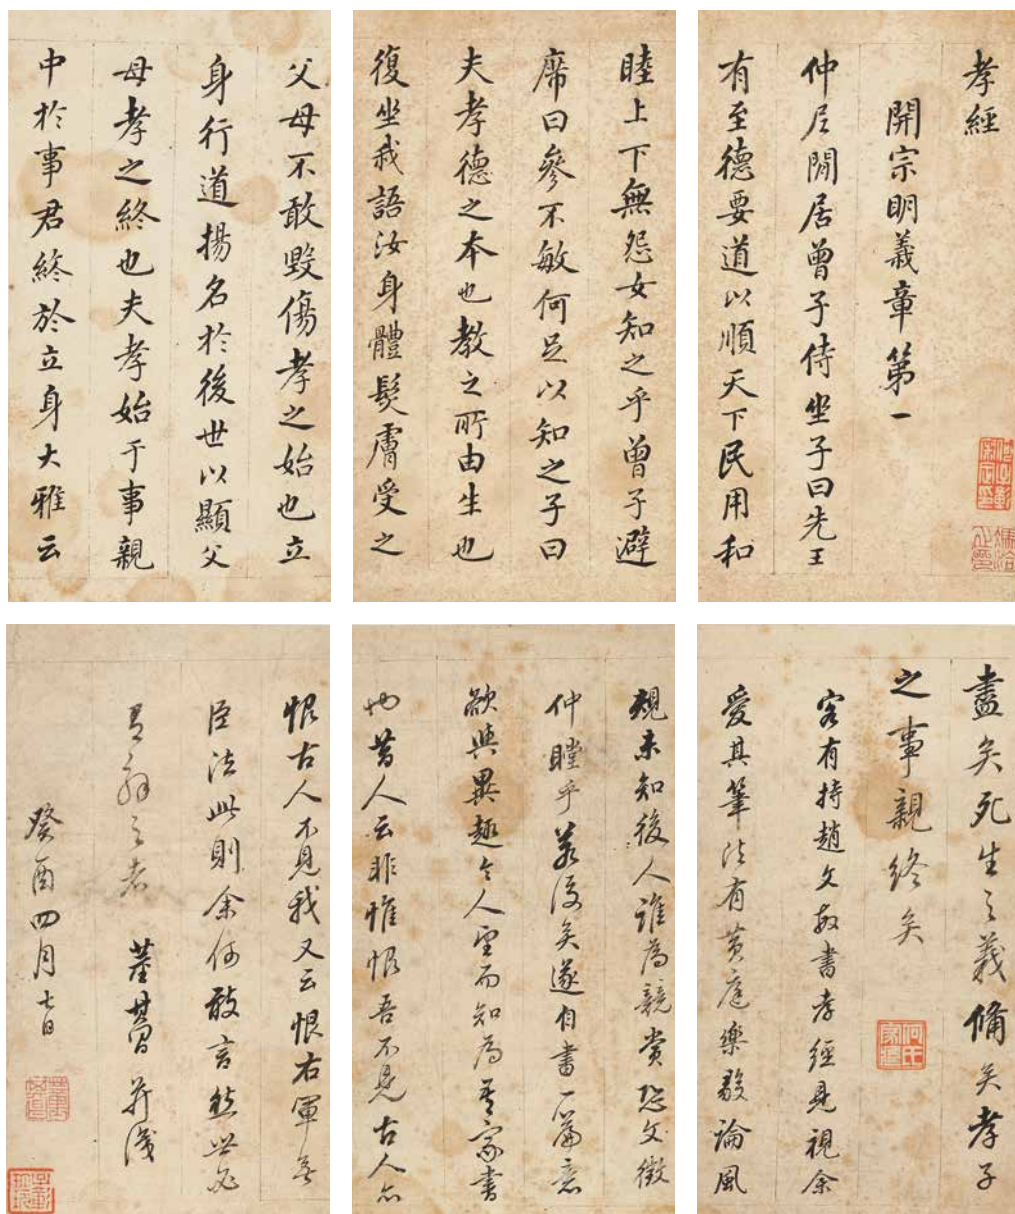 孝經
開宗明義章第一
仲尼閒居曾子侍坐子曰先王
有至德要道以順天下民用和
睦上下無怨女知之乎曾子避
席曰參不敏何足以知之子曰
夫孝德之本也教之所由生也
復坐我語汝身體髮膚受之
父母不敢毀傷孝之始也立
身行道揚名於後世以顯父
母孝之終也夫孝始于事親
中於事君終於立身大雅云
盡矣死生之義備矣孝子
之事親終矣
客有持趙文敏書孝經見視余
愛其筆法有黃庭樂毅論風
規未知後人誰為競賞恐文徵
仲瞠乎若後矣遂自書一篇意
欲與異趣令人望而知為吾家書
也昔人云非惟恨吾不見古人亦
恨古人不見我又云恨右軍無
臣法此則余何敢言然世必
有解之者 董其昌并識
癸酉四月七日